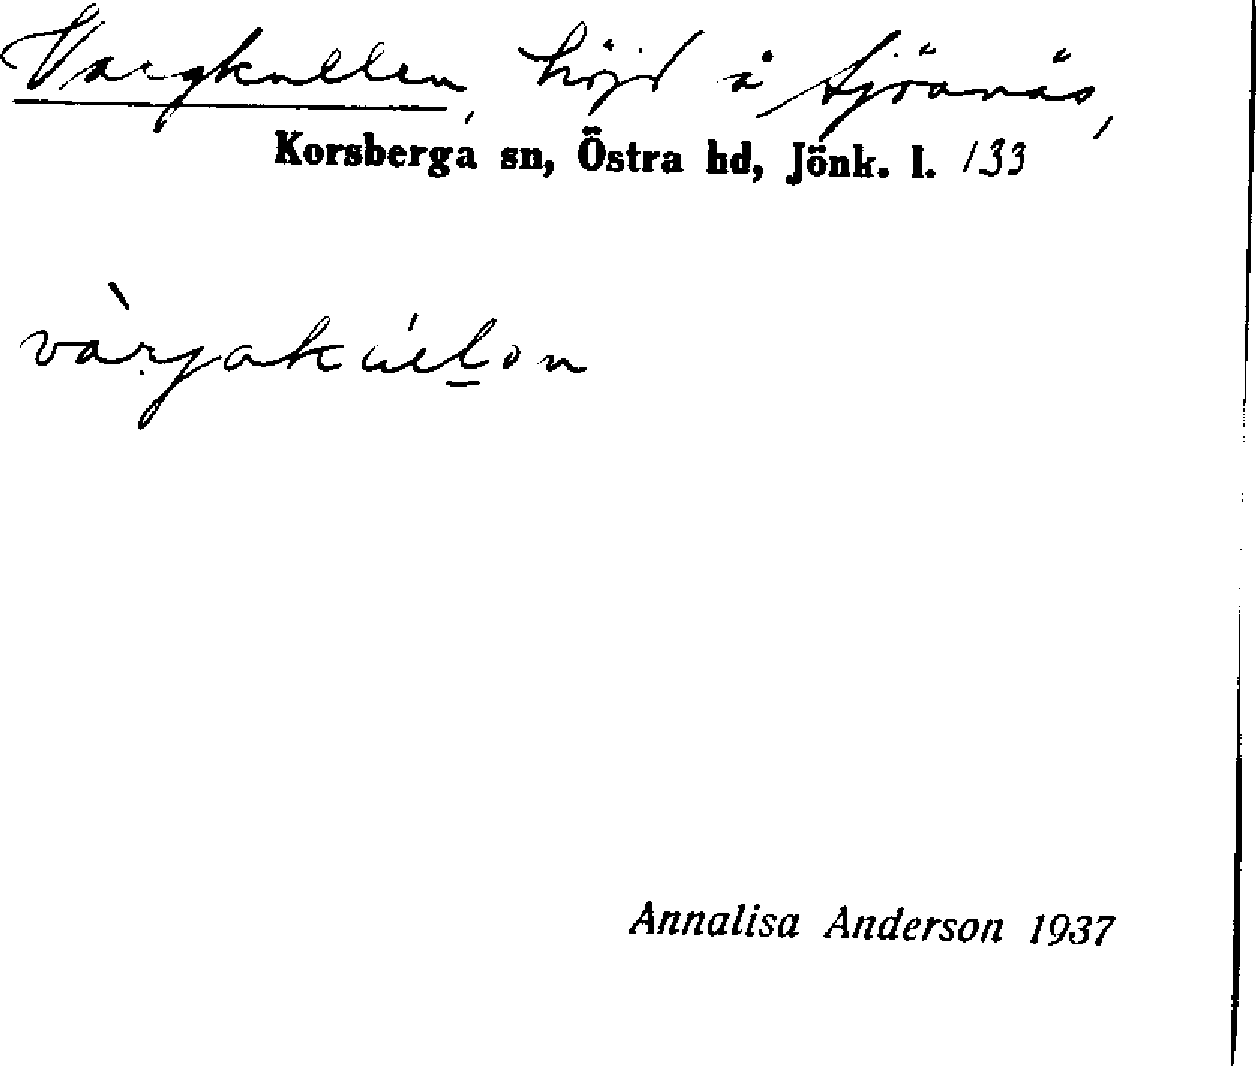 Vargkullen, höjd å Sjöanäs,
Korsberga sn, Östra hd, Jönk. l. 133
Annalisa Anderson 1937